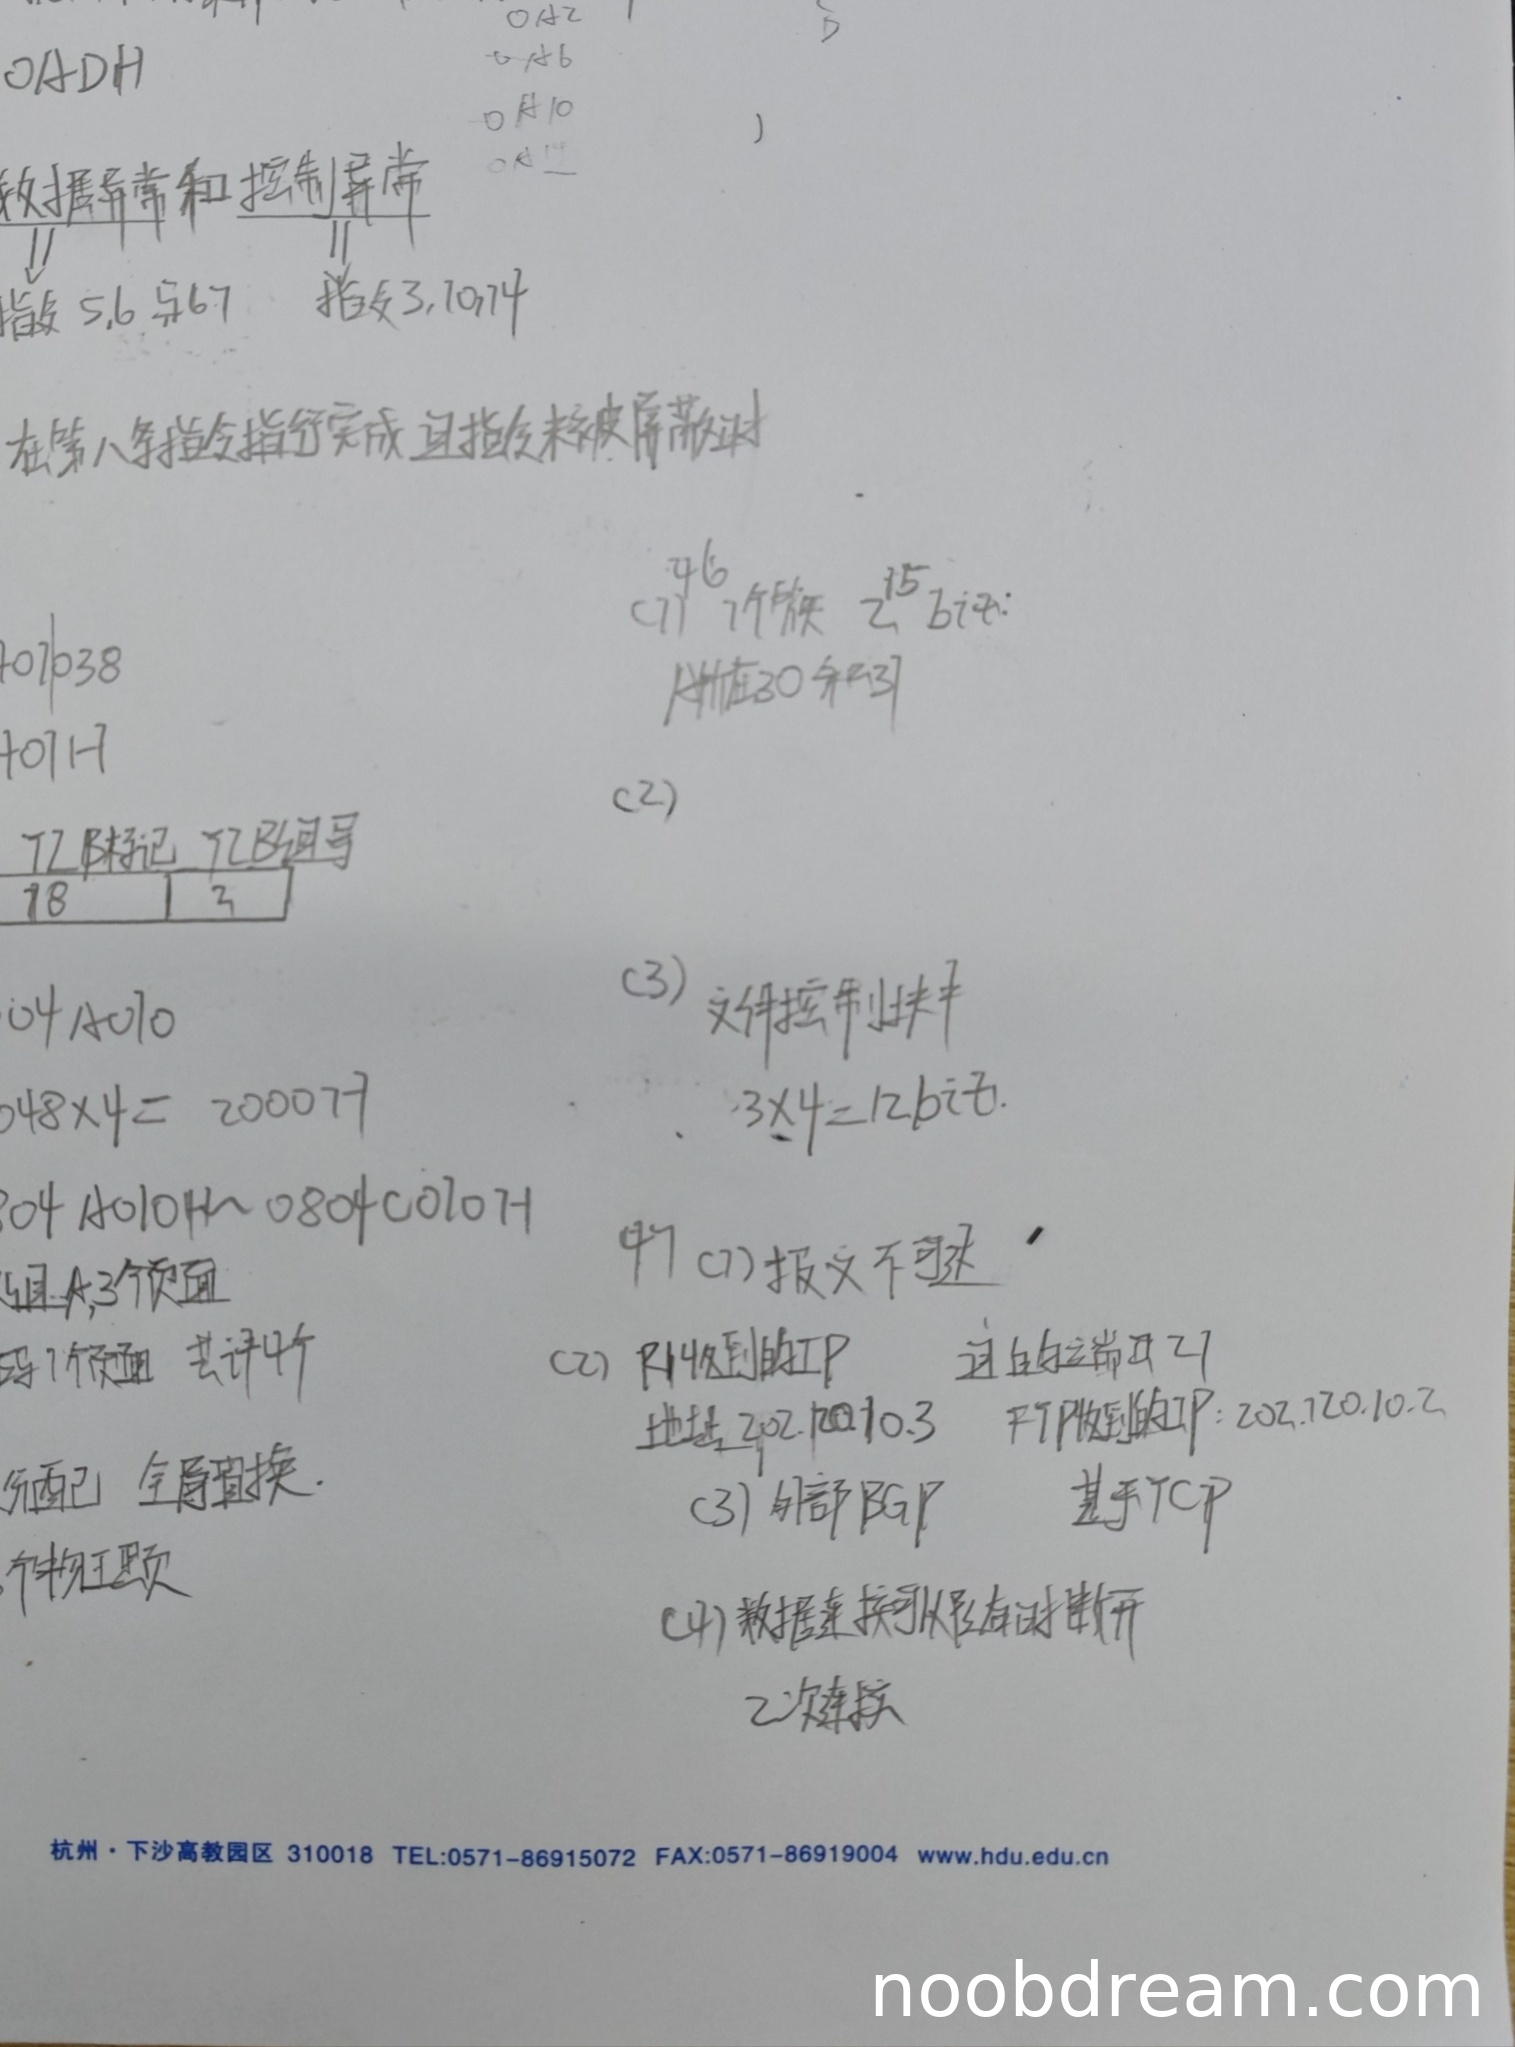 0A2
0A6
0A10
0A14
0ADH
数据异常和控制异常
指令5,6与67 指令3,10,14
在第八条指令指行完成且指令未被屏蔽时
+01038
+01H
TLB标记 TLB组号
18 3
04A010
048×4= 2000H
804A010H~0804C010H
组A,3个页面
码1个页面 共计4个
分配 全局置换.
个物理页
46
(1) 1个磁 2^15 bit:
(2)
(3) 文件控制块中
3×4=12bit.
47 (1) 报文不可达
(2) R1收到的IP 目的端口21
地址202.120.10.3 FTP收到的IP: 202.120.10.2
(3) 外部BGP 基于TCP
(4) 数据连接可以随时断开
2次连接
杭州·下沙高教园区 310018 TEL:0571-86915072 FAX:0571-86919004 www.hdu.edu.cn
noobdream.com